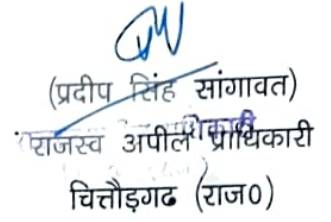 (प्रदीप सिंह सांगावत)
राजस्व अपील प्राधिकारी
चित्तौड़गढ (राज०)